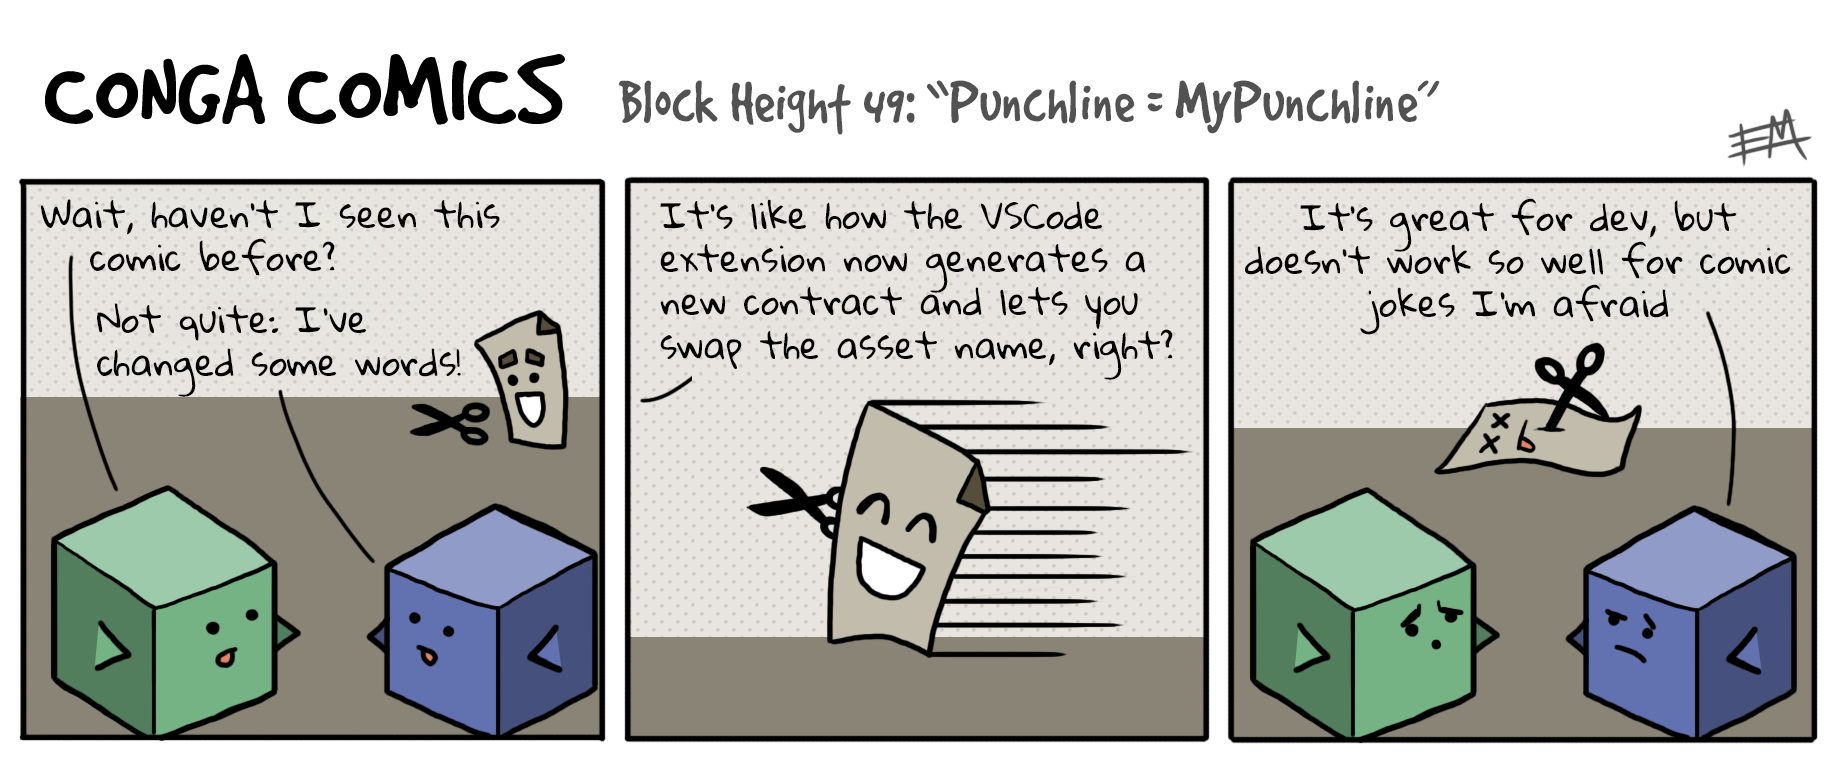 CONGA COMICS
Block Height 49: "Punchline = MyPunchline"
EM
Wait, haven't I seen this
comic before?
Not quite: I've
changed some words!
It's like how the VSCode
extension now generates a
new contract and lets you
swap the asset name, right?
It's great for dev, but
doesn't work so well for comic
jokes I'm afraid